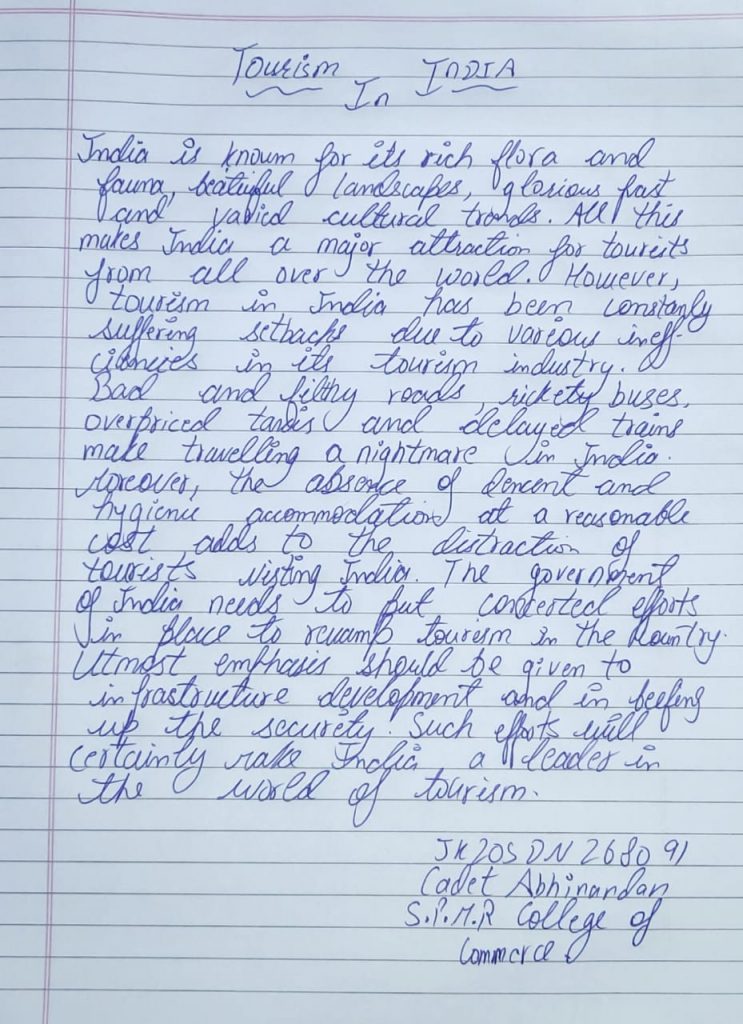 Tourism
In INDIA
India is knowm for its rich flora and
fauna, beatuiful landscapes, glorious past
and varied cultural trends. All this
makes India a major attraction for toureits
from all over the world. However,
tourism in India has been constanly
suffering setbacks due to various ineff-
ciancies in its tourism industry.
Bad and filthy roads, rickety buses,
overpriced taxis and delayed trains
make travelling a nightmare in India.
Moreover, the absence of dencent and
hygienic accommodation at a reasonable
cost adds to the distraction of
tourists visting India. The government
of India needs to put concerted efforts
in place to revamp tourism in the Kountry.
Utmost emphasis should be given to
infrastructure development and in beefing
up the security. Such efforts will
certainly make India a leader in
the world of tourism.
JK20SDN268091
Cadet Abhinandan
S.P.M.R College of
Commerce